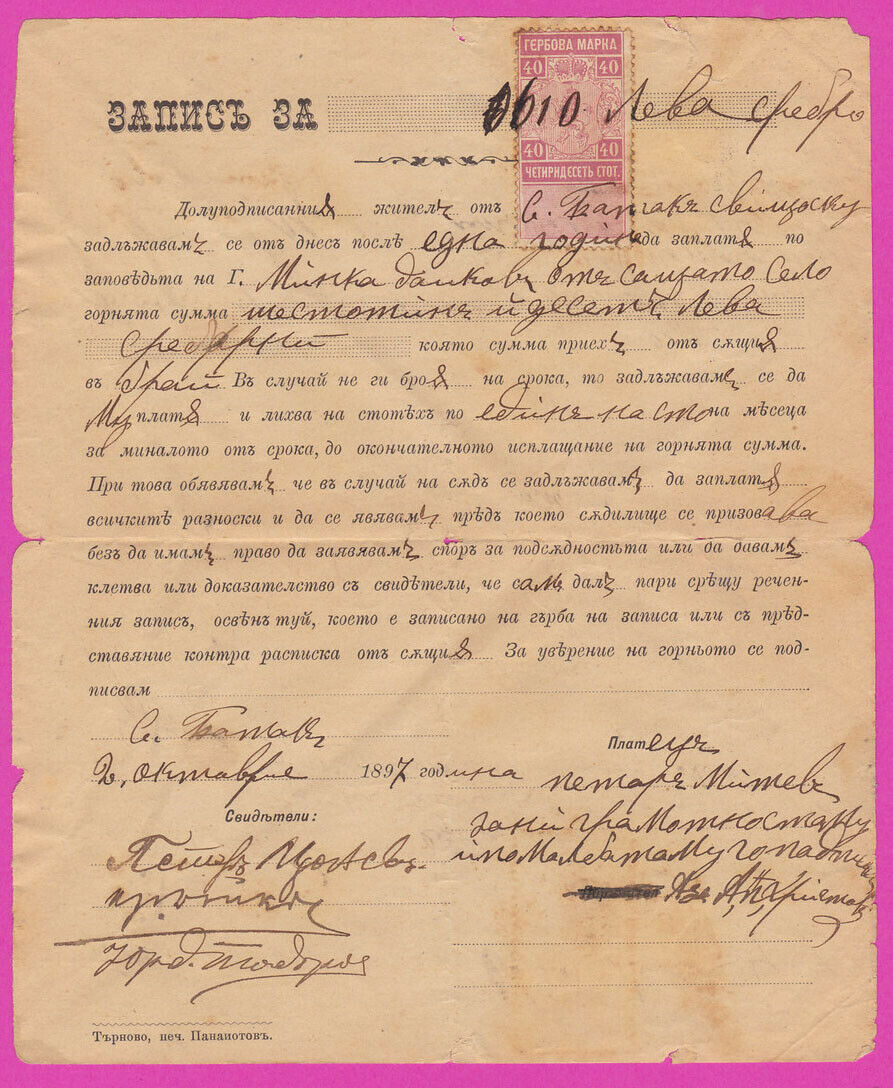 ГЕРБОВА МАРКА
40 40
40 40
ЧЕТИРИДЕСЕТЬ СТОТ.
ЗАПИСЪ ЗА 610 Лева сребро
Долуподписанния жителъ отъ С. Батакъ
задлъжавамъ се отъ днесъ послѣ една година да заплатя по
заповѣдьта на Г. Минка Данковъ отъ сащато село
горнята сумма шестотинъ и десетъ Лева
сребърни която сумма приехъ отъ сѫщия
въ брай Въ случай не ги броя на срока, то задлъжавамъ се да
Му платя и лихва на стотѣхъ по единъ на сто на мѣсеца
за миналото отъ срока, до окончателното исплащание на горнята сумма.
При това обявявамъ че въ случай на сѫдъ се задлъжавамъ да заплатя
всичкитѣ разноски и да се явявамъ прѣдъ което сѫдилище се призовава
безъ да имамъ право да заявявамъ споръ за подсѫдностьта или да давамъ
клетва или доказателство съ свидѣтели, че самъ далъ пари срѣщу речен-
ния запись, освѣнъ туй, което е записано на гърба на записа или съ прѣд-
ставяние контра расписка отъ сѫщия За увѣрение на горньото се под-
писвам
С. Батакъ
2, октаврие 1897 година
Платецъ
петаръ Митевъ
Свидѣтели:
Петъръ
за ни грамотностаму
и по молбатаму го подписахъ
Азъ
Юрд. Тодоров
Търново, печ. Панаиотовъ.